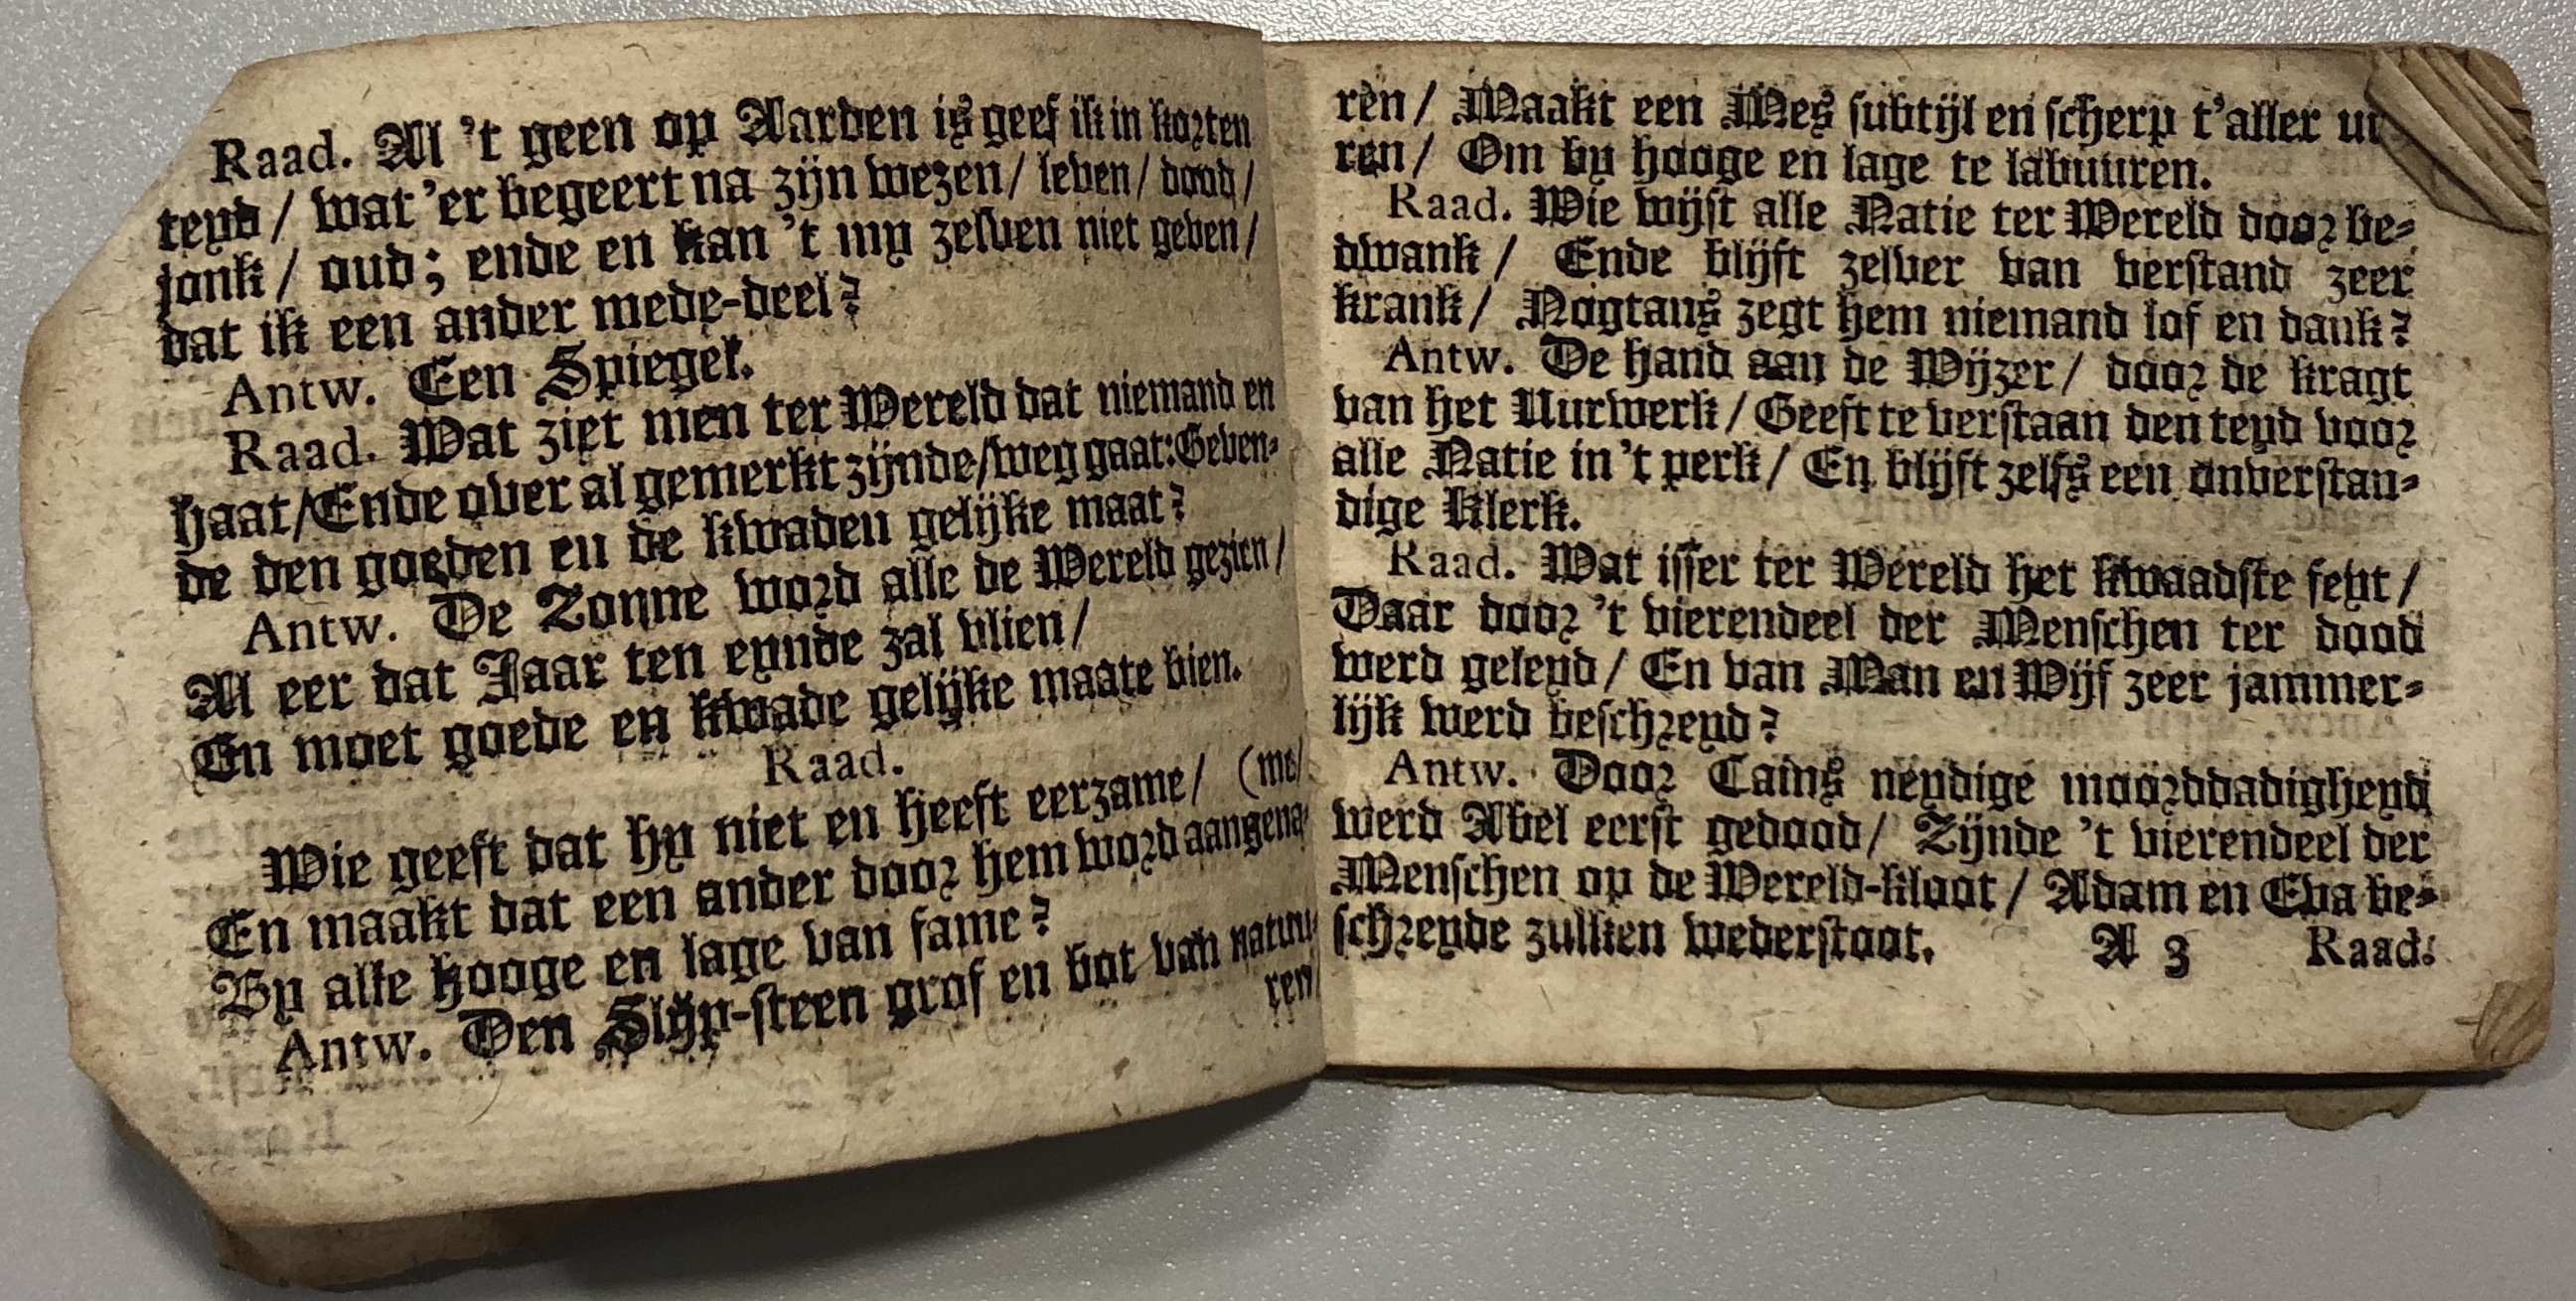 Raad. Al 't geen op Aarden is geef ik in korten
teyd / wat 'er begeert na zijn wezen / leven / dood /
jonk / oud; ende en kan 't my zelven niet geven /
dat ik een ander mede-deel?
Antw. Een Spiegel.
Raad. Wat ziet men ter Wereld dat niemand en
haat / Ende over al gemerkt zijnde / weg gaat: Geven-
de den goeden en de kwaden gelijke maat?
Antw. De Zonne word alle de Wereld gezien /
Al eer dat Jaar ten eynde zal vlien /
En moet goede en kwade gelijke maate bien.
Raad.
Wie geeft dat hy niet en heeft eerzame / (me/
En maakt dat een ander door hem word aangena-
By alle hooge en lage van fame?
Antw. Den Slijp-steen grof en bot van natuu-
ren/
ren / Maakt een Mes subtijl en scherp t'aller
ren / Om by hooge en lage te labuuren.
Raad. Wie wijst alle Natie ter Wereld door be-
dwank / Ende blijft zelver van verstand zeer
krank / Nogtans zegt hem niemand lof en dank?
Antw. De hand aan de Wijzer / door de kragt
van het Uurwerk / Geeft te verstaan den teyd voor
alle Natie in 't perk / En blijft zelfs een onverstan-
dige Klerk.
Raad. Wat isser ter Wereld het kwaadste feyt /
Daar door 't vierendeel der Menschen ter dood
werd geleyd / En van Man en Wijf zeer jammer-
lijk werd beschreyd?
Antw. Door Cains neydige moorddadigheyd
werd Abel eerst gedood / Zijnde 't vierendeel der
Menschen op de Wereld-kloot / Adam en Eva be-
schreyde zulken wederstoot. A 3 Raad.